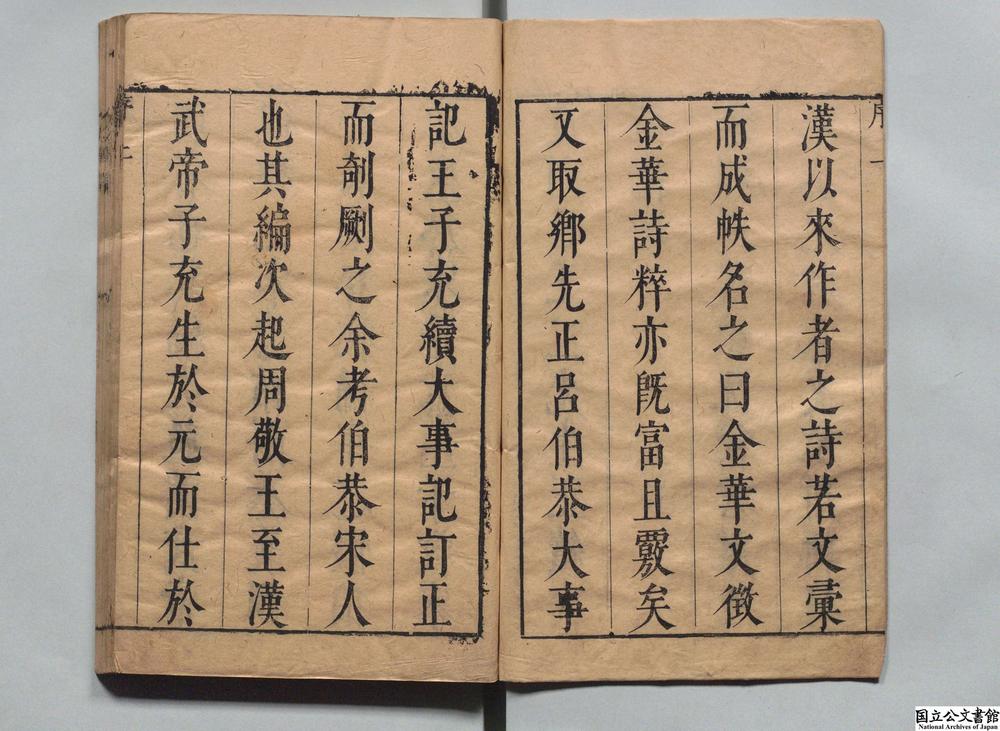 漢以來作者之詩若文彚
而成帙名之曰金華文徵
金華詩粹亦既富且覈矣
又取鄉先正呂伯恭大事
記王子充續大事記訂正
而剞劂之余考伯恭宋人
也其編次起周敬王至漢
武帝子充生於元而仕於
国立公文書館
National Archives of Japan